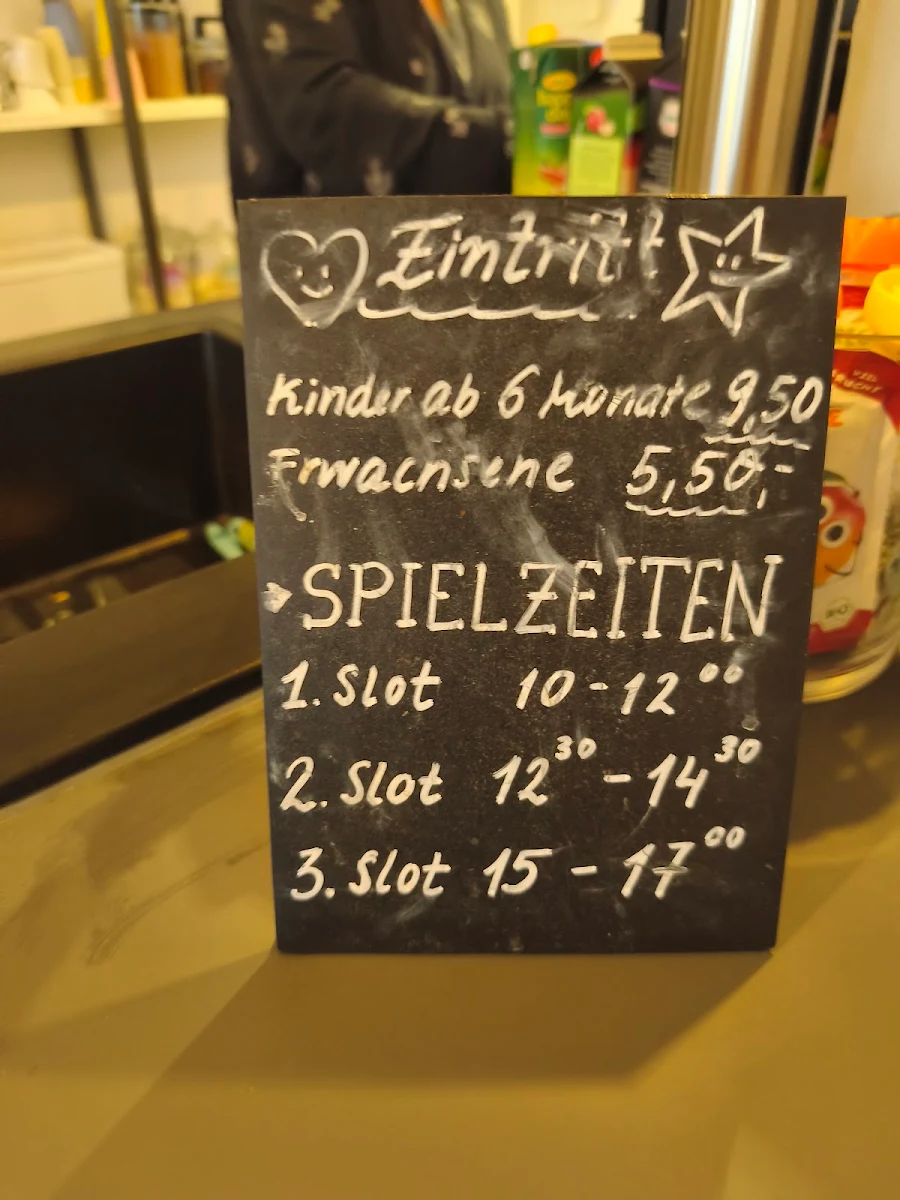 Eintritt
Kinder ab 6 Monate 9,50
Erwachsene 5,50,-
SPIELZEITEN
1. Slot 10-12 00
2. Slot 12 30 - 14 30
3. Slot 15 - 17 00
BIO